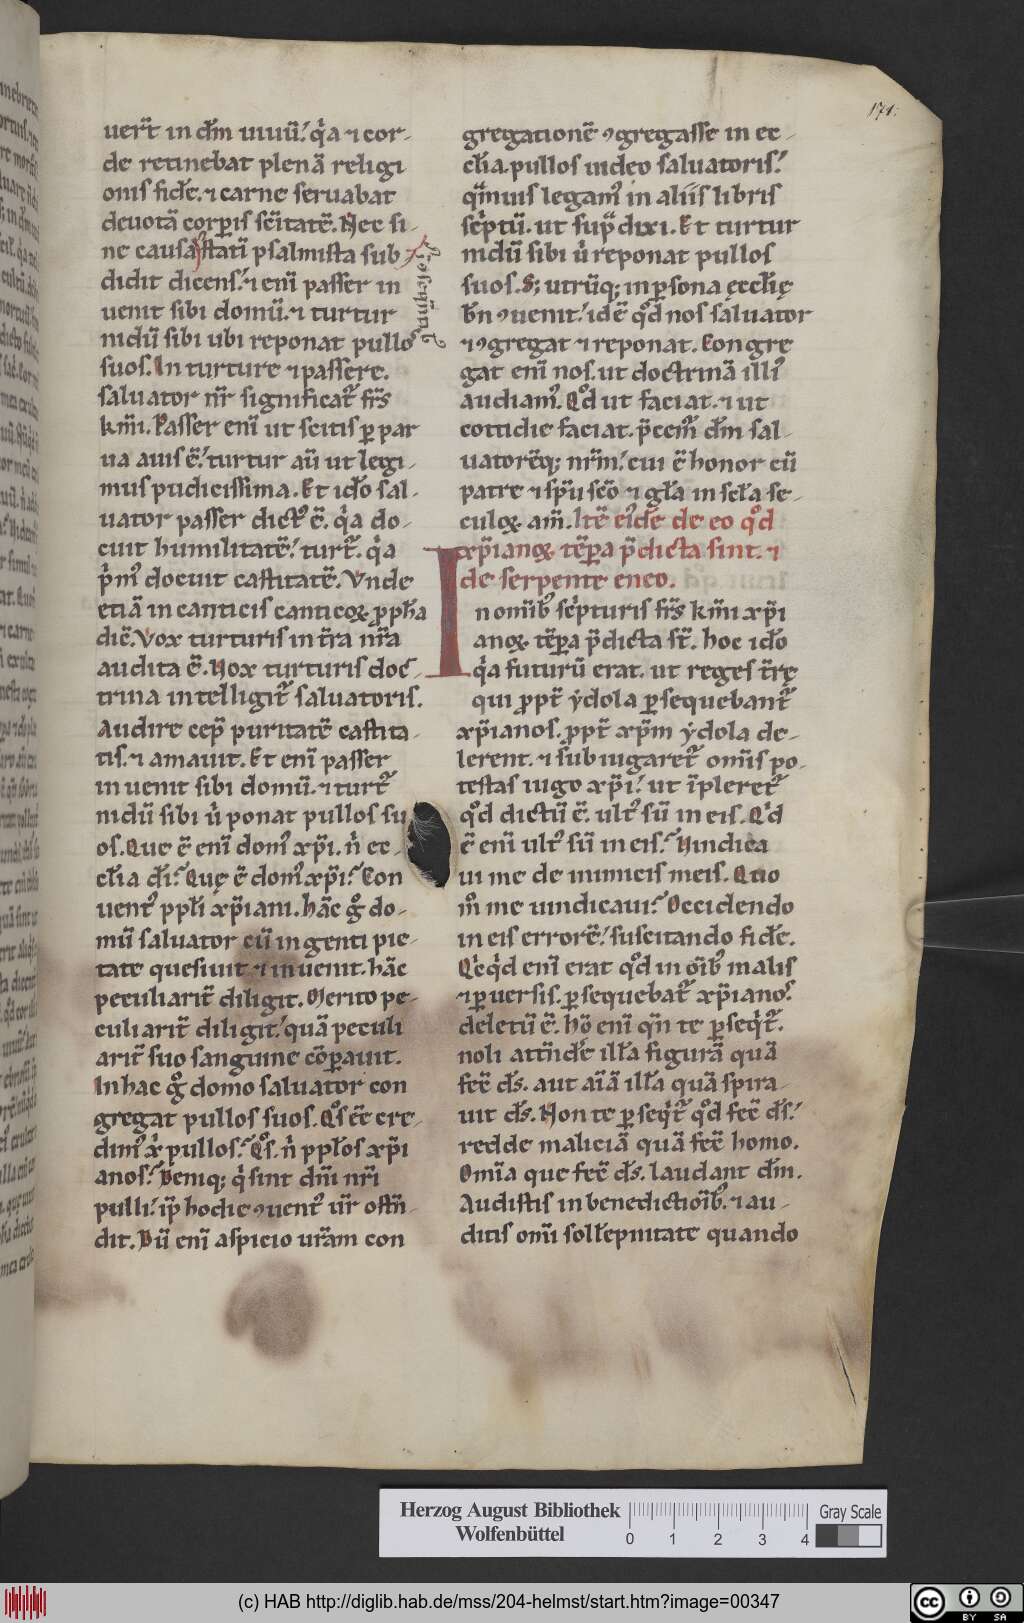 171.
uert̄ in dm̄ uiuū. q̇a ⁊ cor-
de retinebat plenā religi
onis fidē. ⁊ carne seruabat
deuotā corꝑis sc̄itatē. Nec si-
ne causa statī psalmista sub-
didit dicens. ⁊ enī passer in
uenit sibi domū. ⁊ turtur
nidū sibi ubi reponat pullos
suos. In turture ⁊ passere.
saluator nr̄ significat̄ fr̄s
km̄i. Passer enī ut scitis ꝑ par
ua auis ē. turtur aū ut legi-
mus pudicissima. Et idō sal-
uator passer dictꝰ ē. q̇a do-
cuit humilitatē. turt̄. q̇a
p̄nꝰ docuit castitatē. Vnde
etiā in canticis canticoꝝ ꝓph̄a
dic̄. Vox turturis in t̄ra nr̄a
audita ē. Vox turturis doc-
trina intelligit̄ saluatoris.
Audire cep̄ puritatē castita-
tis. ⁊ amauit. Et enī passer
inuenit sibi domū. ⁊ turt̄
nidū sibi u̇ ponat pullos su
os. Que ē enī domꝰ xp̄i. n̄ ec-
cl̄ia dī. Quę ē domꝰ xp̄i. Con
uentꝰ ppl̄i xp̄iani. hāc g̊ do-
mū saluator cū ingenti pie-
tate quesiuit ⁊ inuenit. hāc
peculiarit̄ diligit. Merito pe-
culiarit̄ diligit. quā peculi
arit̄ suo sanguine cōꝑauit.
In hac g̊ domo saluator con
gregat pullos suos. Qͦs ēē cre-
dimꝰ x̄ pullos. Qͦs. n̄ ppl̄os xp̄i
anos. Deniq; q̇ sint dn̄i nr̄i
pulli. ip̄ hodie ꝯuentꝰ ur̄ ostn̄-
dit. Dū enī aspicio ur̄am con
gregationē ꝯgregasse in ec-
cl̄ia. pullos uideo saluatoris.
qm̄uis legamꝰ in aliis libris
sc̄ptū. ut sup̄ dixi. Et turtur
nidū sibi u̇ reponat pullos
suos. S; utrūq; in ꝑsona ęcclīę
bn̄ ꝯuenit. idē qͦd nos saluator
⁊ ꝯgregat ⁊ reponat. Congre
gat enī nos. ut doctrinā illiꝰ
audiamꝰ. Qͦd ut faciat. ⁊ ut
cottidie faciat. p̄cem̄ dm̄ sal-
uatorēq; nr̄m. cui ē honor cū
patre ⁊ sp̄u sc̄o ⁊ gl̄a in scl̄a se-
culoꝝ. am̄. Itē eiꝰdē de eo qͦd
xp̄ianoꝝ tēꝑa p̄dicta sint. ⁊
de serpente eneo.
In omībꝰ sc̄pturis fr̄s km̄i xp̄i
anoꝝ tēꝑa p̄dicta st̄. hoc idō
q̇a futurū erat. ut reges t̄rę
qui ꝓpt̄ ydola ꝑsequebant̄
xp̄ianos. ꝓpt̄ xp̄m ydola de-
lerent. ⁊ subiugaret̄ omīs po-
testas iugo xp̄i. ut īpleret̄
qͦd dictū ē. ultꝰ sū in eis. Qͥd
ē enī ultꝰ sū in eis. Vindica
ui me de inimicis meis. Quo
m̊ me uindicaui. Occidendo
in eis errorē. suscitando fidē.
Qͥcqͥd enī erat qͦd in oībꝰ malis
⁊ ꝑuersis. ꝑsequebat̄ xp̄ianos.
deletū ē. hō enī qn̄ te ꝑseqͥt̄.
noli attn̄dē ill̄a figurā quā
fec̄ ds̄. aut aīā ill̄a quā spira-
uit ds̄. Non te ꝑseqͥt̄ qͦd fec̄ ds̄.
redde maliciā quā fec̄ homo.
Omīa que fec̄ ds̄. laudant dm̄.
Audistis in benedictioībꝰ. ⁊ au-
ditis omī sollēpnitate quando
Herzog August Bibliothek
Wolfenbüttel
0 1 2 3 4
Gray Scale
(c) HAB http://diglib.hab.de/mss/204-helmst/start.htm?image=00347
cc BY SA